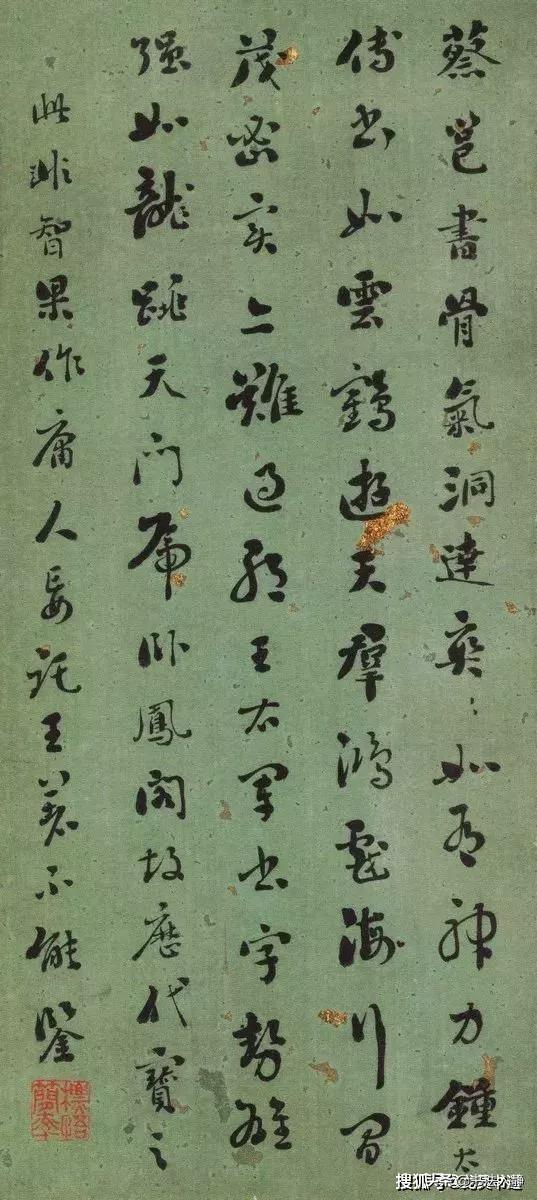 蔡邕書骨氣洞達奕〻如有神力鍾太
傅書如雲鶴遊天群鴻戲海行間
茂密實亦難過耶王右軍書字勢雄
强如龍跳天門虎卧鳳閣故歷代寶之
此非智果作庸人妄託王著不能鑒
搜狐号@